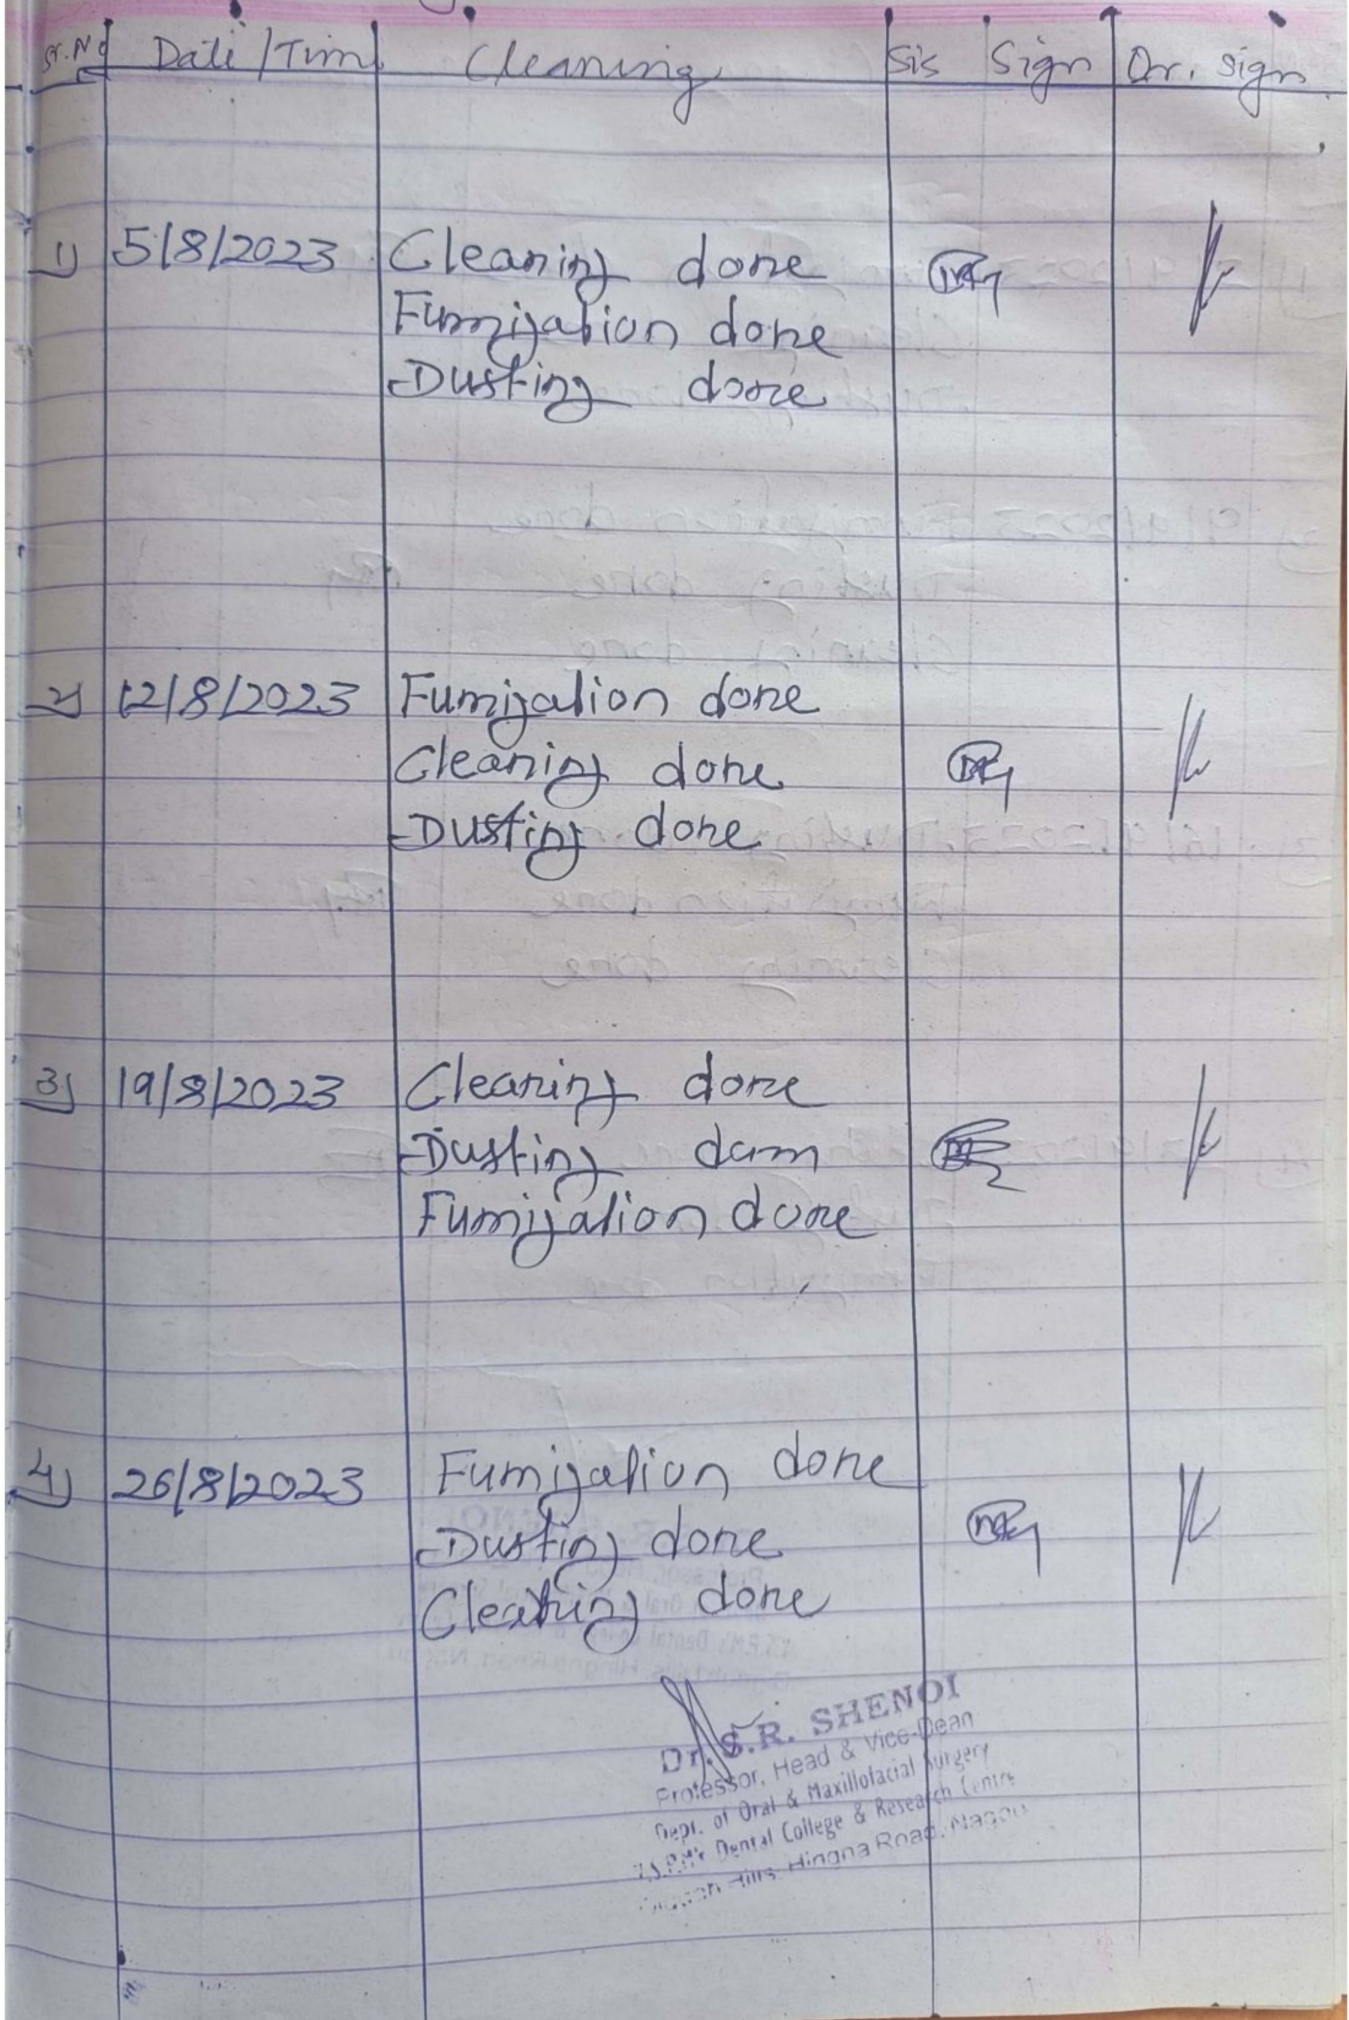 Sr.No Date/Tim Cleaning Sis Sign Dr. Sign
1) 5/8/2023 Cleaning done
Fumigation done
Dusting done
2) 12/8/2023 Fumigation done
Cleaning done
Dusting done
3) 19/8/2023 Cleaning done
Dusting dam
Fumigation done
4) 26/8/2023 Fumigation done
Dusting done
Cleaning done
Dr. S.R. SHENOI
Professor, Head & Vice-Dean
Dept. of Oral & Maxillofacial Surgery
Dental College & Research Centre
Hills, Hingna Road, Nagpu